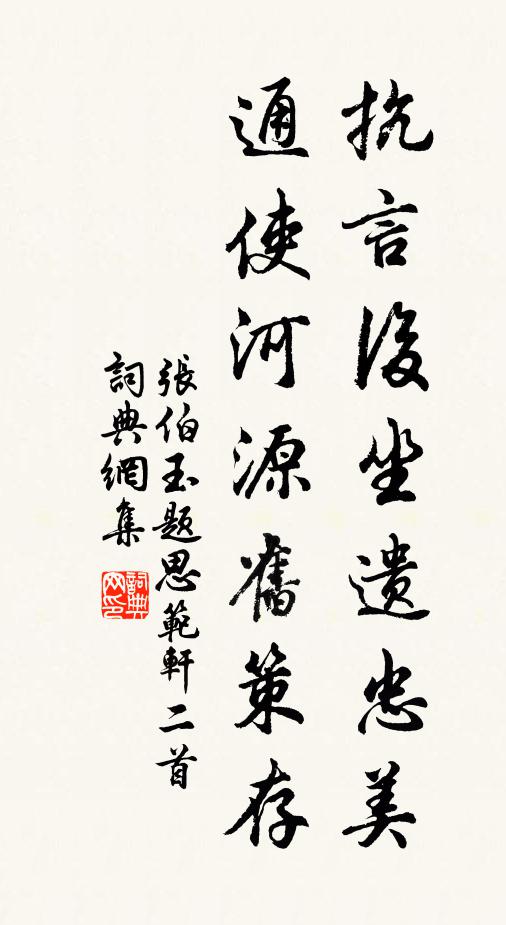 抗言後坐遺忠美
通使河源舊策存
張伯玉題思範軒二首
詞典網集
詞典網印